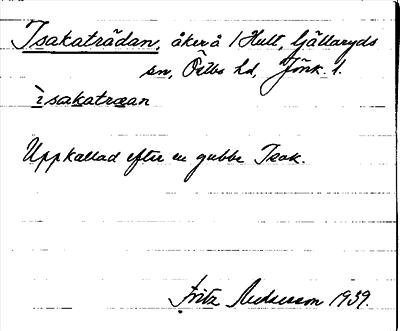 Isakaträdan, åker å 1 Hult, Gällaryds
sn, Östbo hd, Jönk. l.
ìsakatræan
Uppkallad efter en gubbe Isak.
Fritz Andersson 1939.